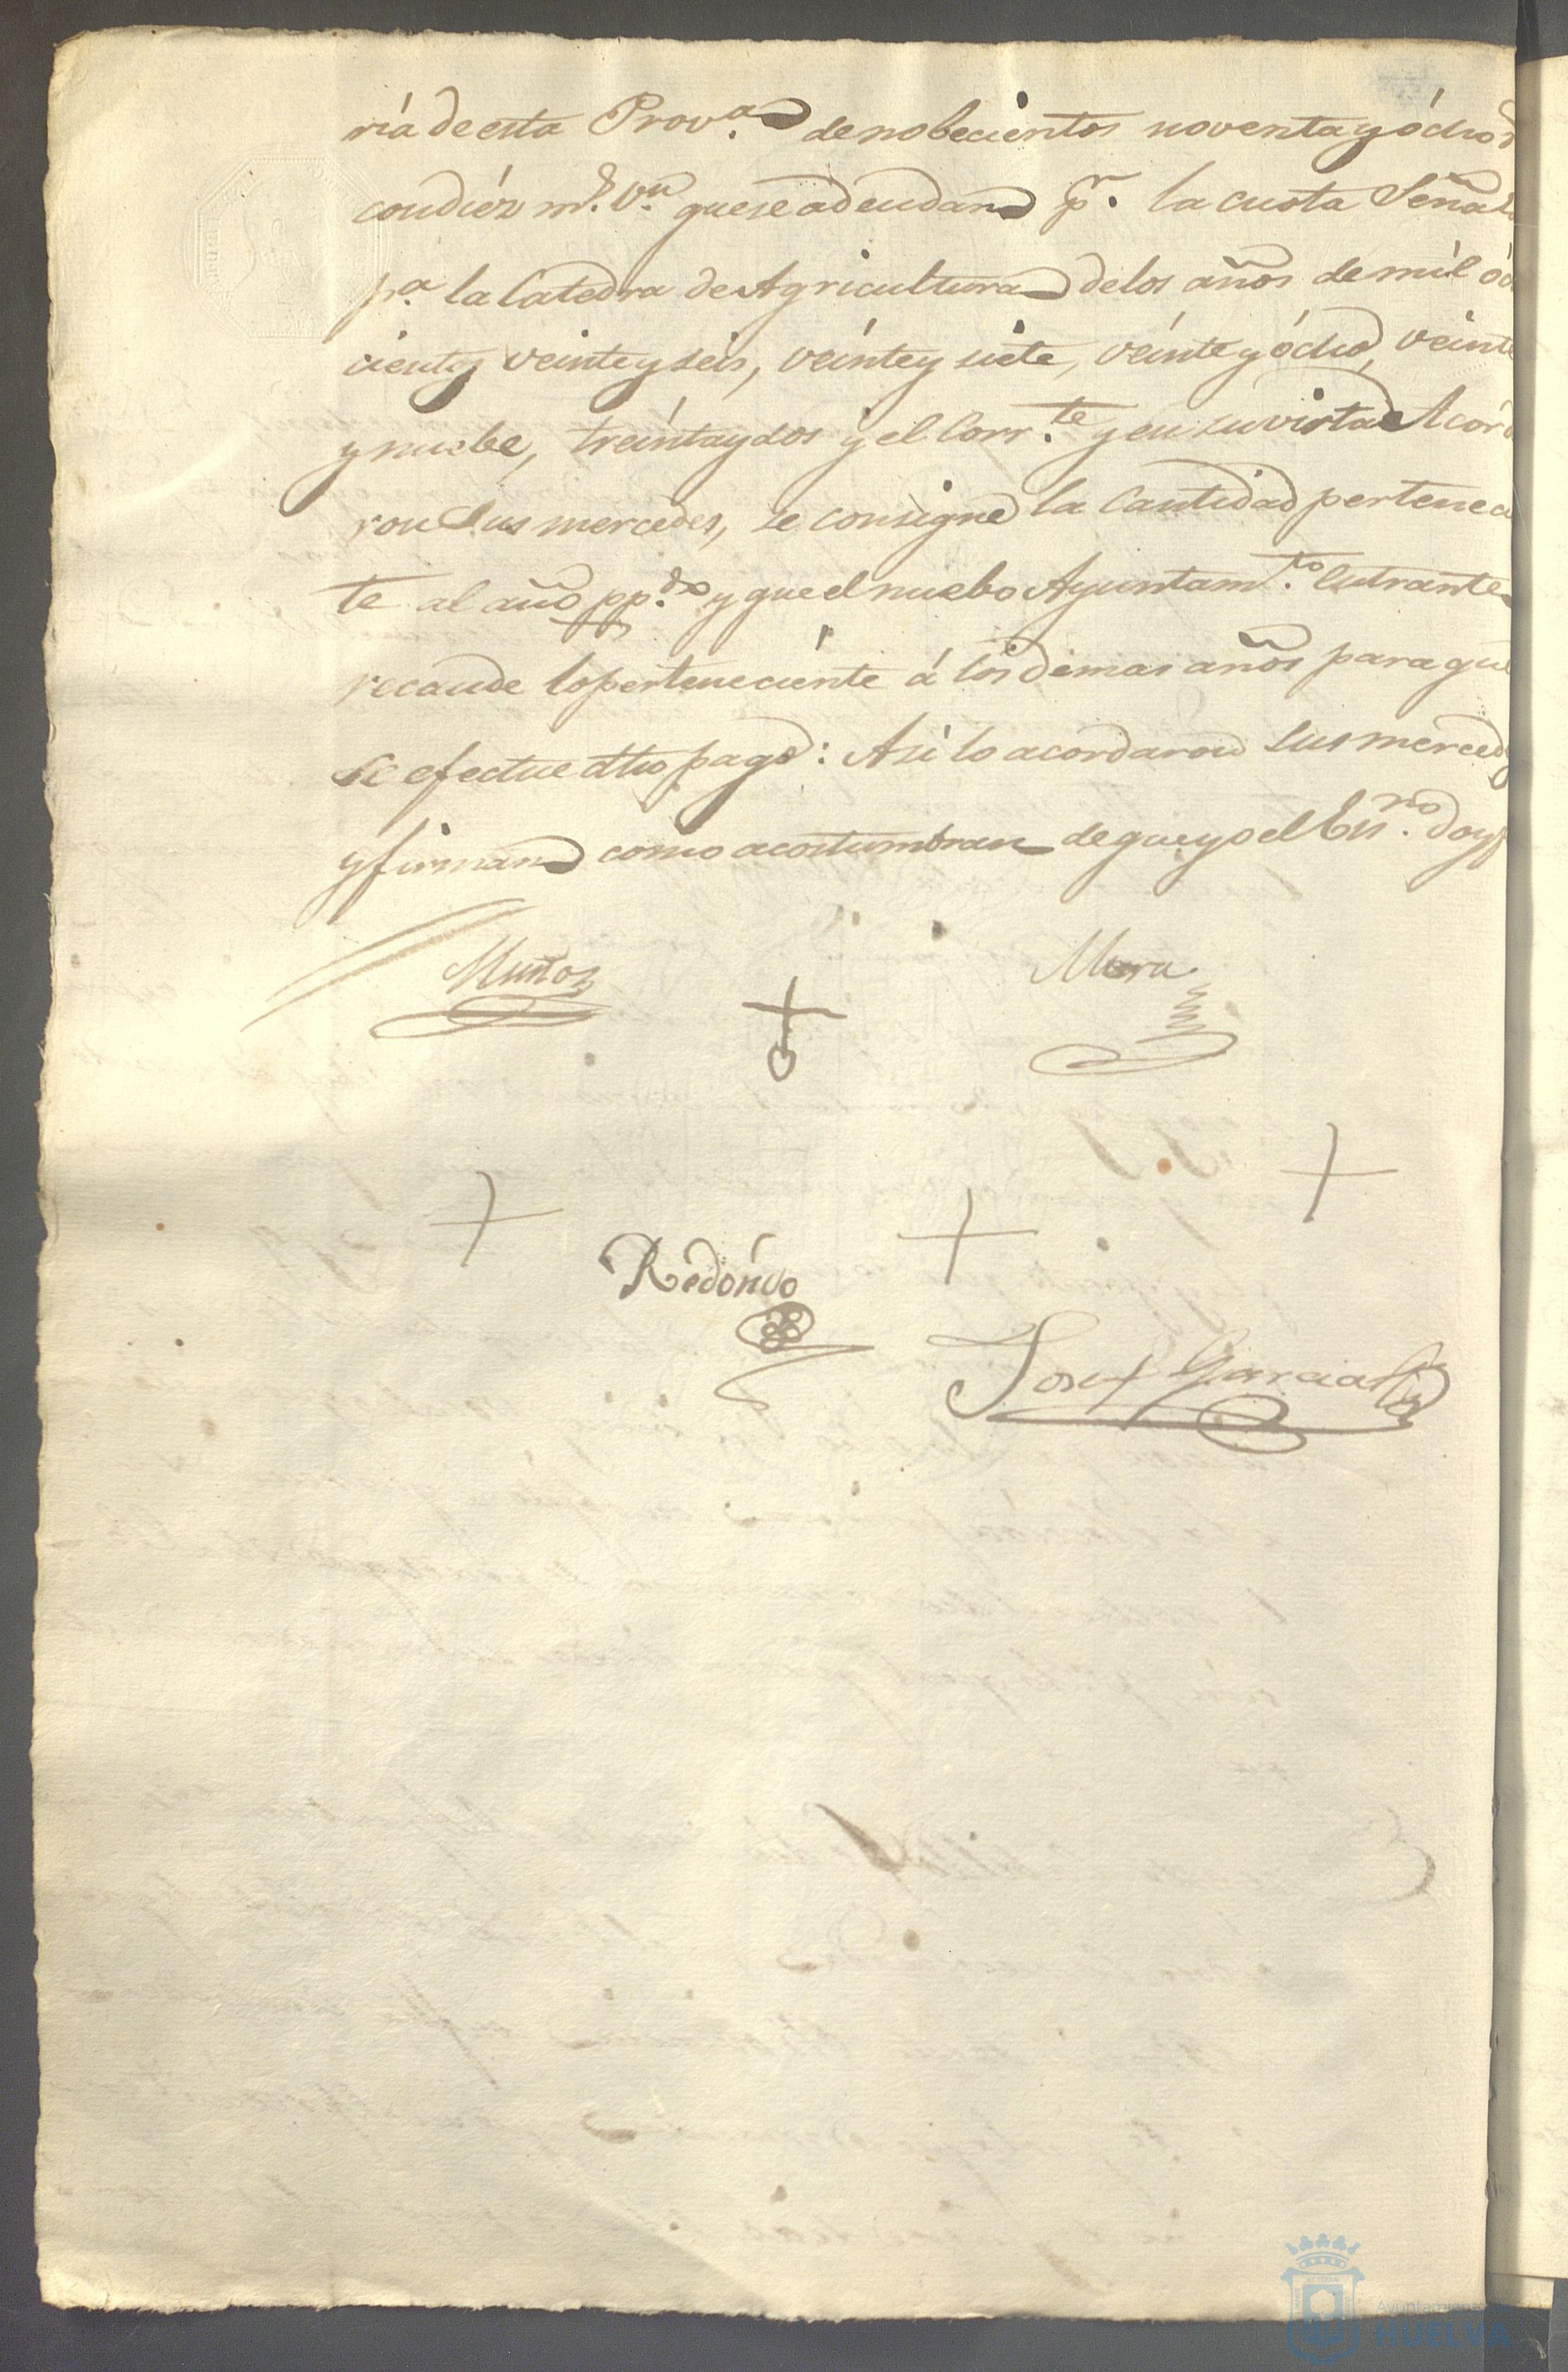 ría de esta Prov.ª de nobecientos noventa y ócho
con diéz m.s v.n que se adeudan p.r la cuota Señala
p.a la Catedra de Agricultura de los años de mil óc
cientos veinte y seis, veínte y siéte, veínte y ócho, veínte
y nuebe, treínta y dos y el Corr.te y en su virtud Acorda
ron Sus mercedes, se consigne la Cantidad pertenec
te al año pp.do y que el nuebo Ayuntam.to Entrante
recaude lo perteneciénte á los demas años para que
se efectue dho pago: Asi lo acordaron sus mercedes
y firman como acostumbran de que yo el Esn.no doy f
Muñoz
Mora
Redóndo
José Garcia
Ayuntamiento de
HUELVA